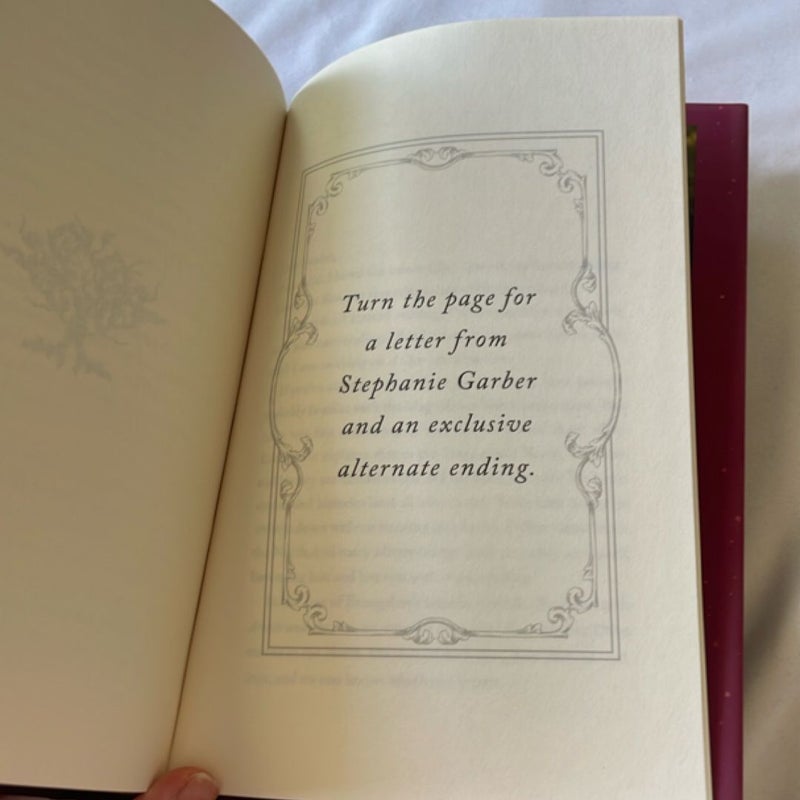 Turn the page for
a letter from
Stephanie Garber
and an exclusive
alternate ending.